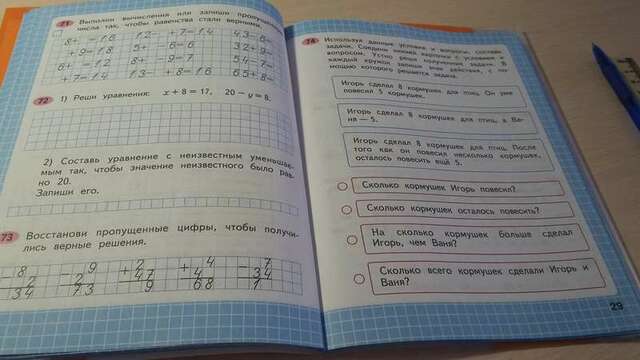 71 Выполни вычисления или запиши пропущенные
числа так, чтобы равенства стали верными.
72 1) Реши уравнения: x + 8 = 17, 20 − y = 8.
2) Составь уравнение с неизвестным уменьшае-
мым так, чтобы значение неизвестного было рав-
но 20.
Запиши его.
73 Восстанови пропущенные цифры, чтобы получи-
лись верные решения.
74 Используя данные условия и вопросы, составь
задачи. Соедини линией карточки с условием и
вопросом. Устно реши полученные задачи. В
каждый кружок запиши знак действия, с по-
мощью которого решается задача.
Игорь сделал 8 кормушек для птиц. Он уже
повесил 5 кормушек.
Игорь сделал 8 кормушек для птиц, а Ва-
ня — 5.
Игорь сделал 8 кормушек для птиц. После
того как он повесил несколько кормушек,
осталось повесить ещё 5.
Сколько кормушек Игорь повесил?
Сколько кормушек осталось повесить?
На сколько кормушек больше сделал
Игорь, чем Ваня?
Сколько всего кормушек сделали Игорь и
Ваня?
29